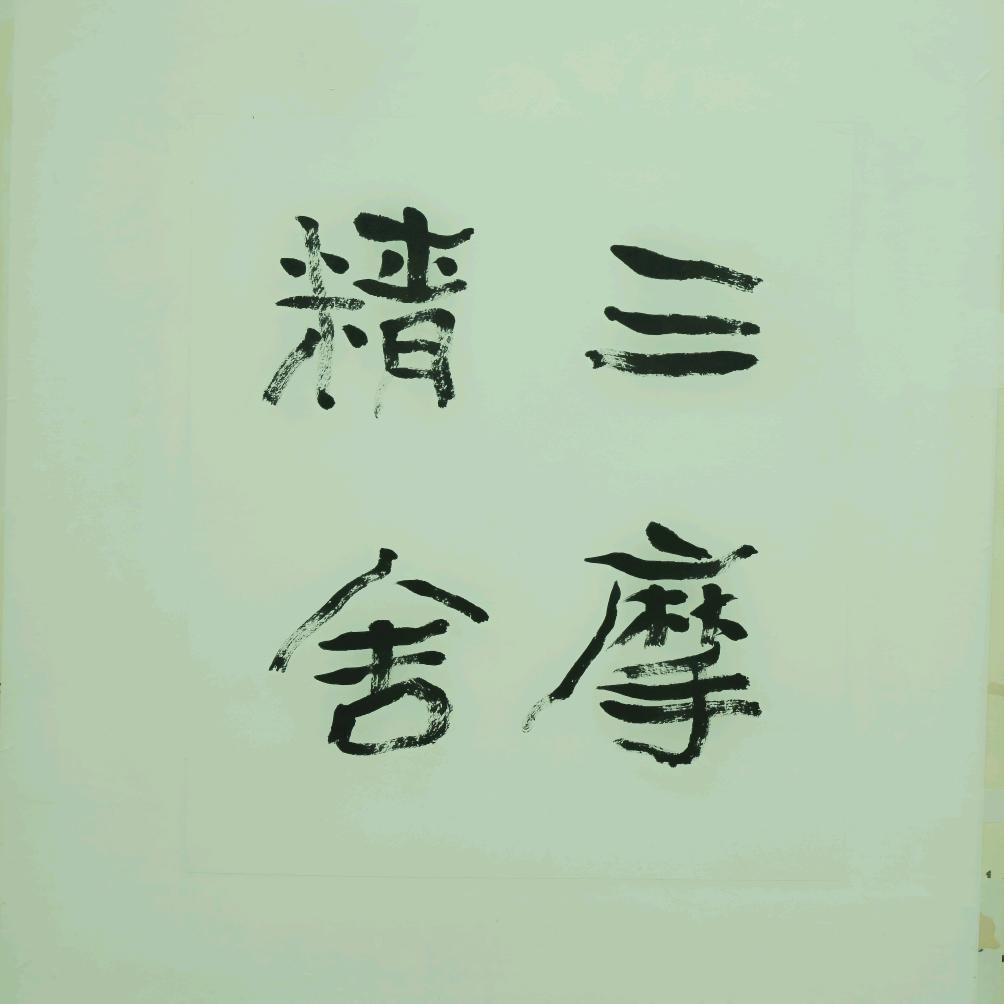 三摩
精舍